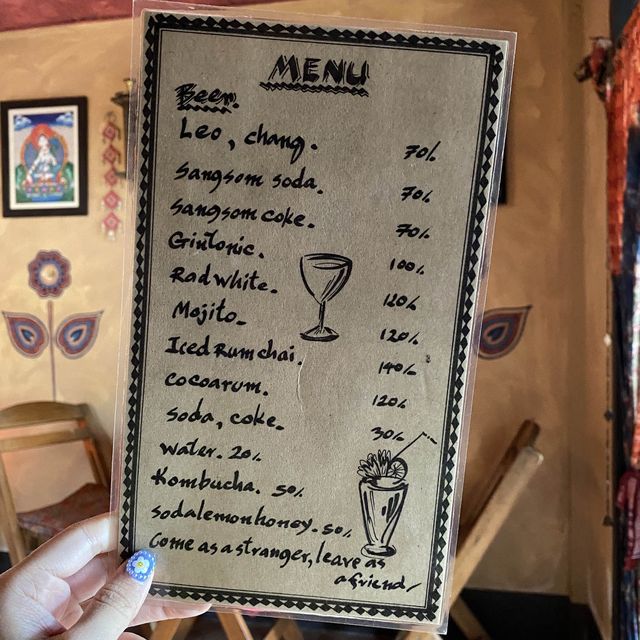 MENU
Beer.
Leo, chang. 70/.
Sangsom soda. 70/.
sangsom coke. 70/.
Gintonic. 100/.
Radwhite. 120/.
Mojito. 120/.
Iced Rum chai. 140/.
cocoarum. 120/.
soda, coke. 30/.
water. 20/.
Kombucha. 50/.
sodalemonhoney. 50/.
Come as a stranger, leave as
a friend/